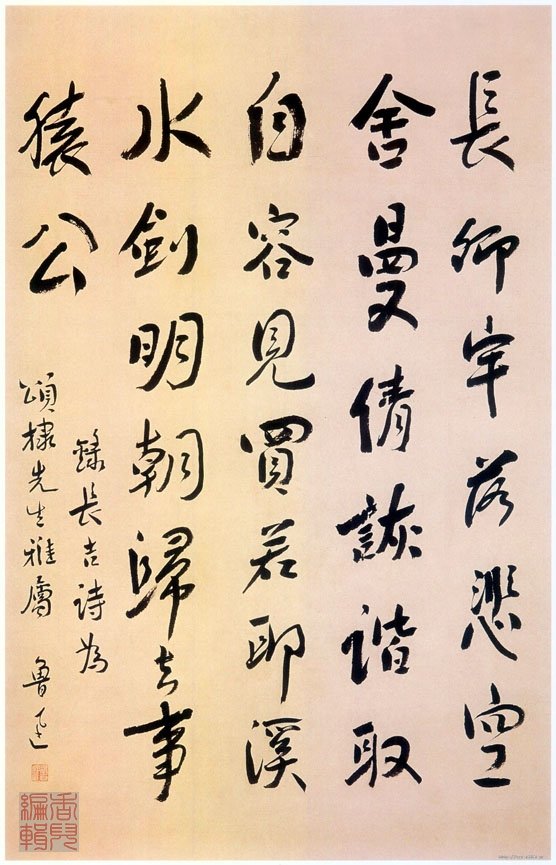 長卿牢落悲空
舍曼倩詼諧取
自容見買若耶溪
水劍明朝歸去事
猿公
錄長吉詩為
頌棣先生雅屬 魯迅
香兒
編輯